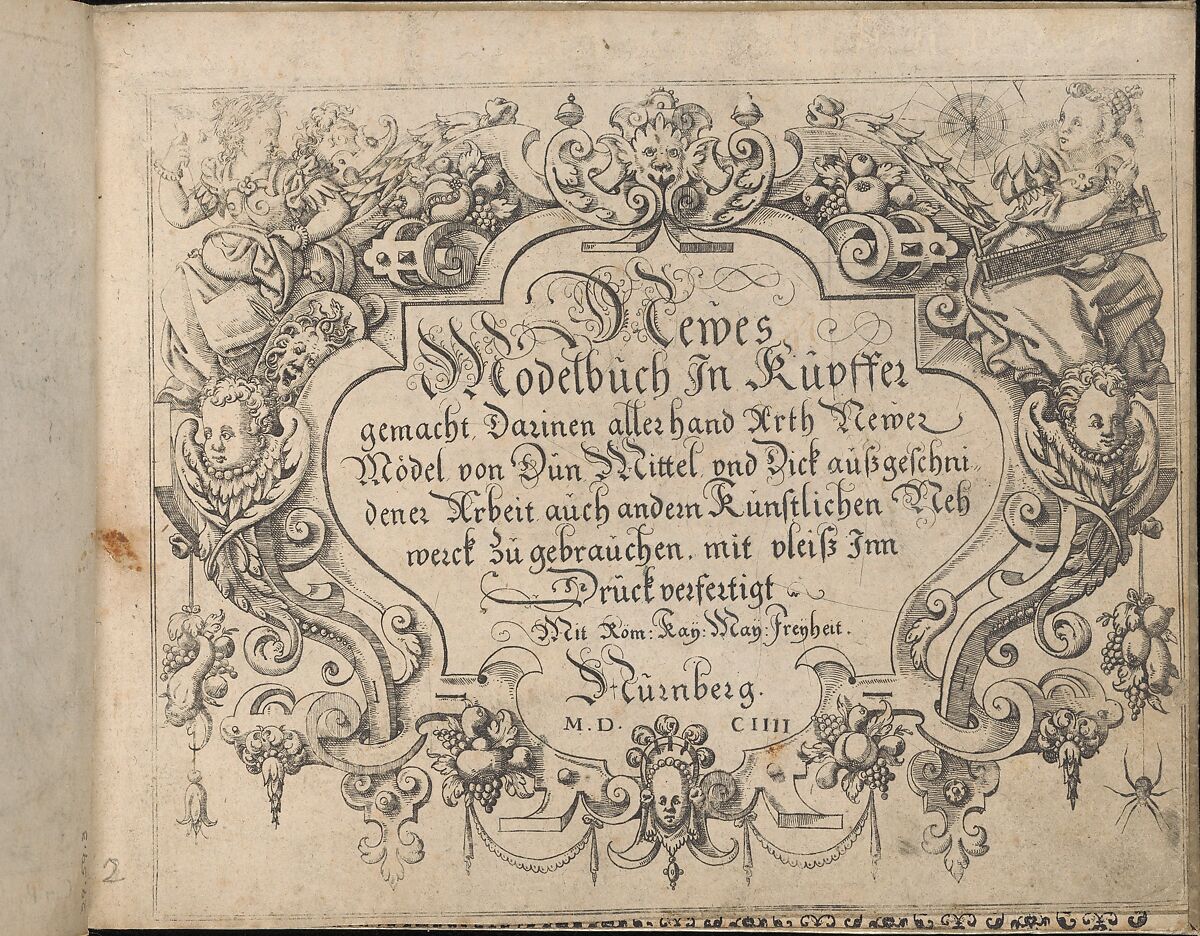 Newes
Modelbuch In Kupffer
gemacht, Darinen allerhand Arth Newer
Mödel von Dün Mittel vnd Dick außgeschni-
dener Arbeit auch andern Künstlichen Neh
werck zu gebrauchen. mit vleiß Inn
Druck verfertigt
Mit Röm: Kay: May: Freyheit.
Nürnberg.
M. D. CIIII
2